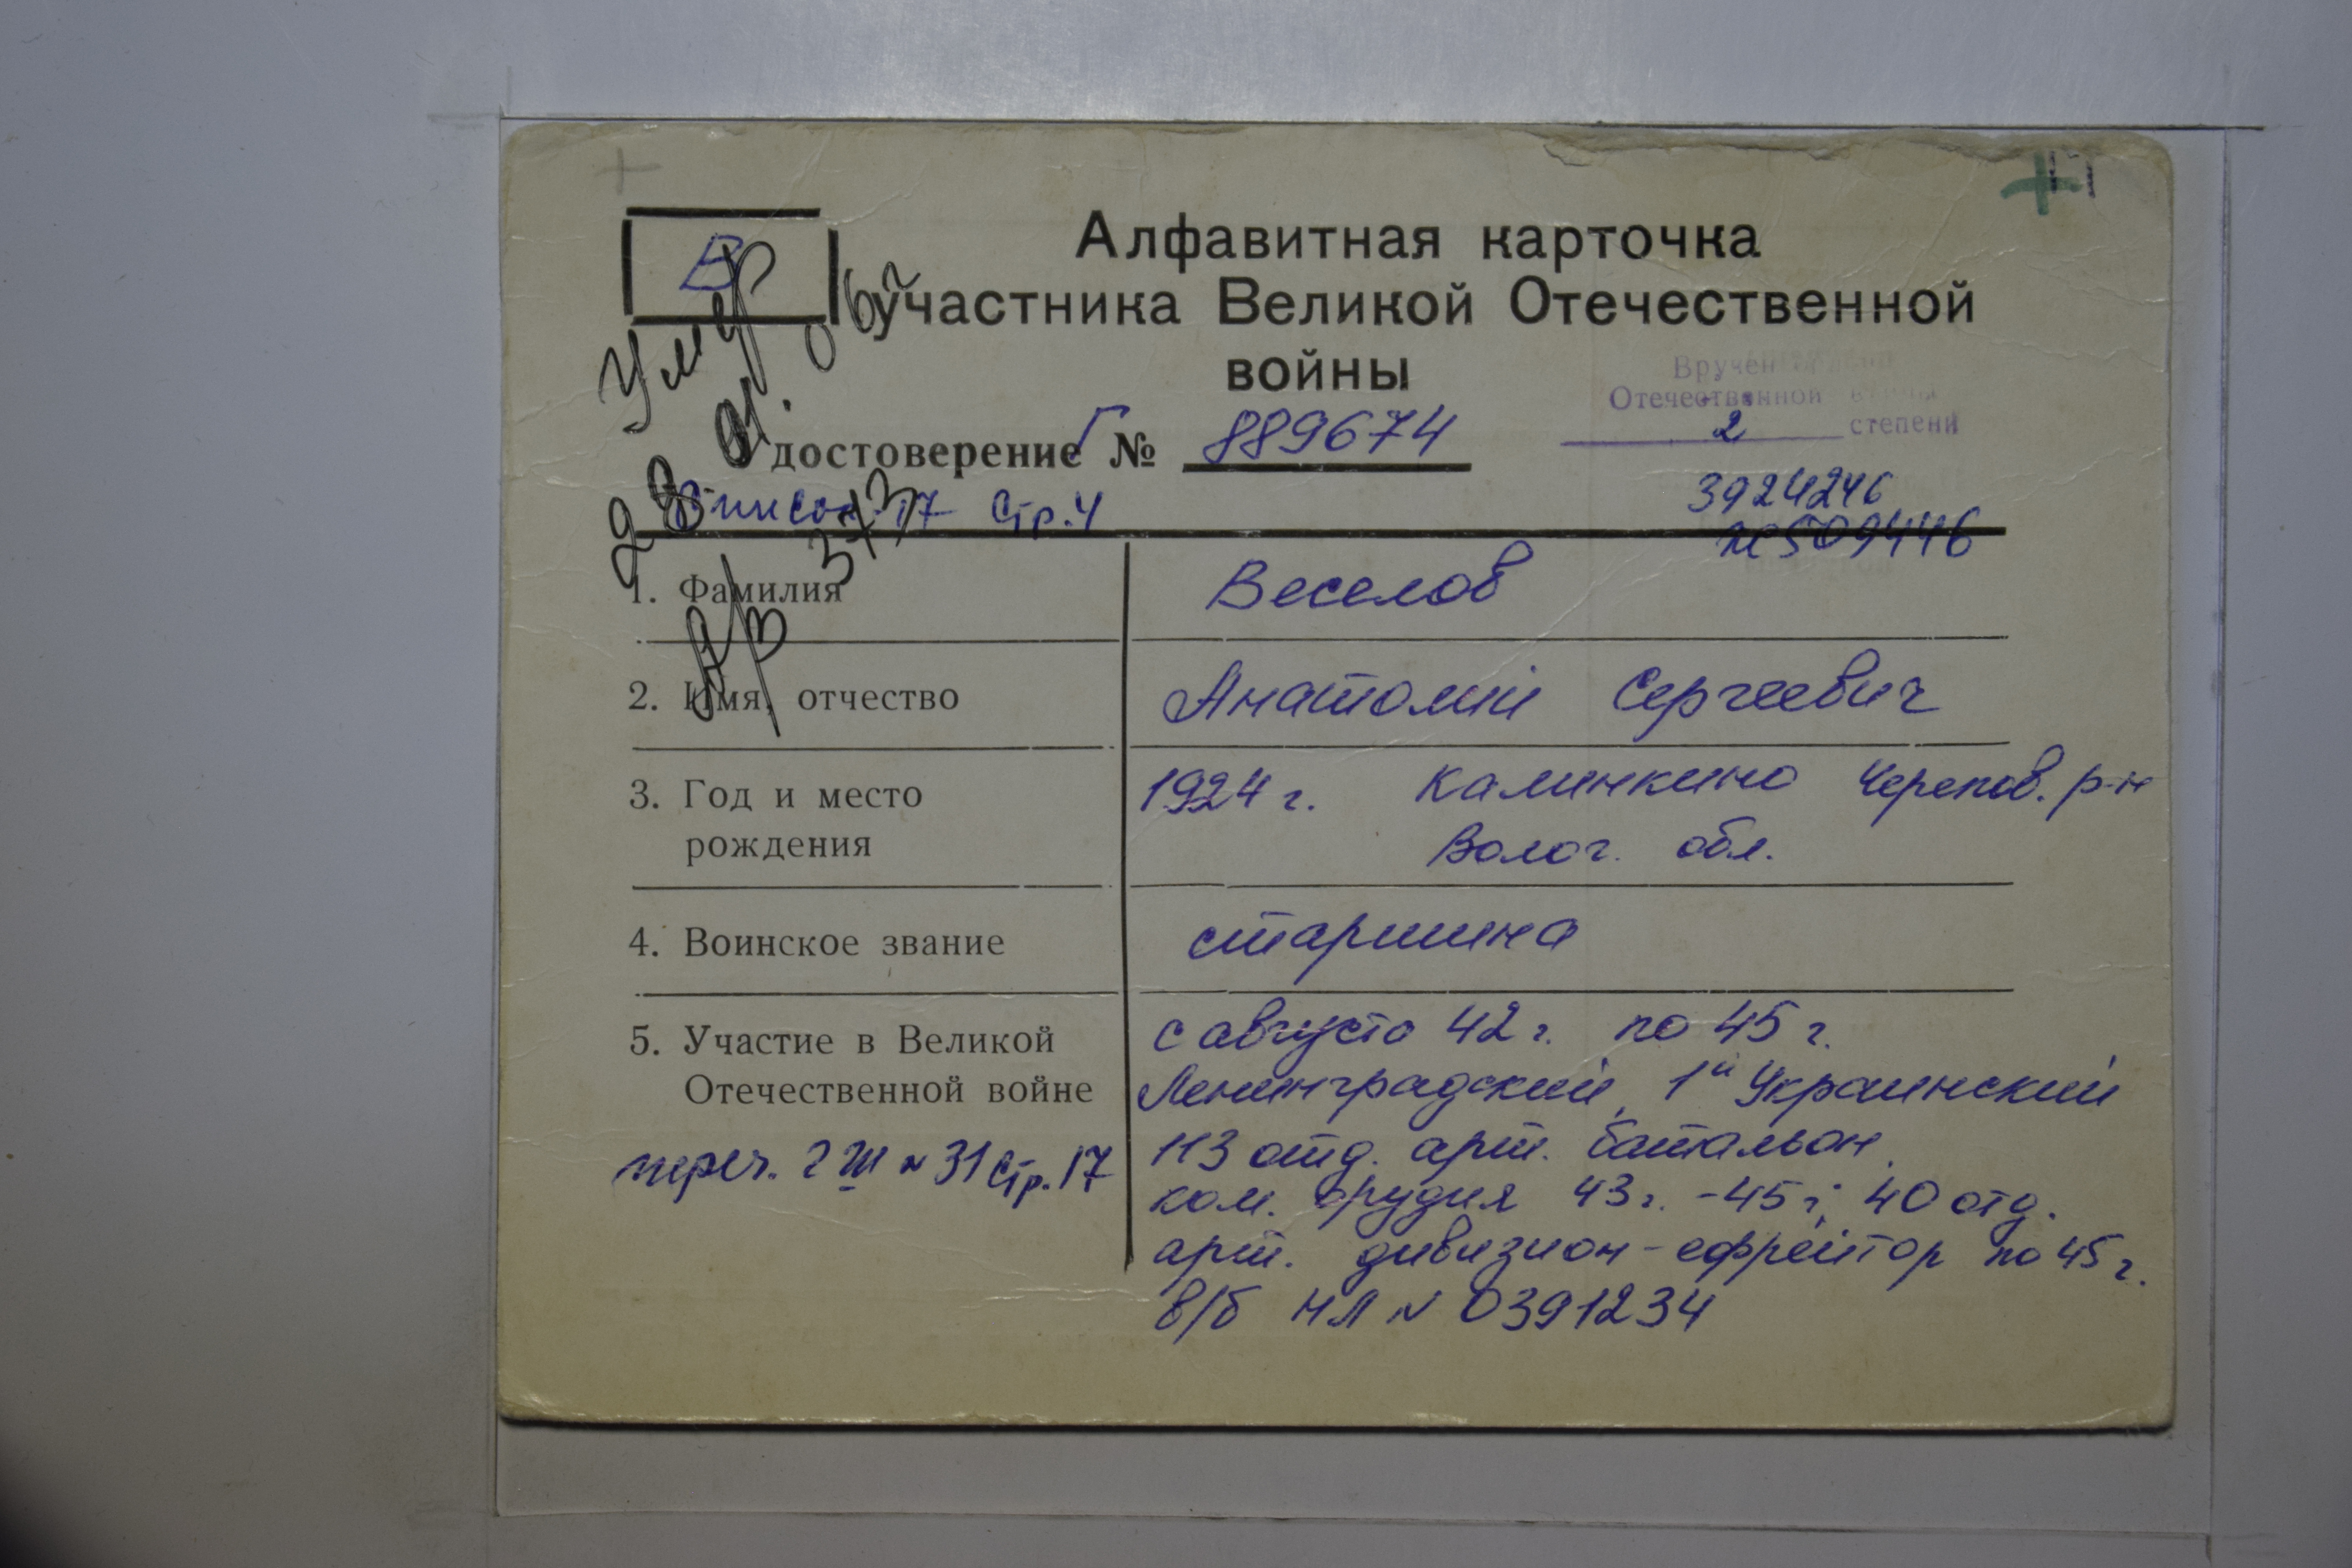 В
Алфавитная карточка
участника Великой Отечественной
войны
Умер
Вручен орден
Отечественной войны
2 степени
Удостоверение Г № 889674
Список 17 Стр. 4
3924246
№5094446
1. Фамилия Веселов
2. Имя, отчество Анатолий Сергеевич
3. Год и место рождения 1924 г. Калинкино Черепов. р-н
Волог. обл.
4. Воинское звание старшина
5. Участие в Великой Отечественной войне с августа 42 г. по 45 г.
Ленинградский, 1й Украинский
113 отд. арт. батальон
ком. орудия 43 г. - 45 г; 40 отд.
арт. дивизион - ефрейтор по 45 г.
в/б НЛ № 0391234
переч. г III № 31 Стр. 17